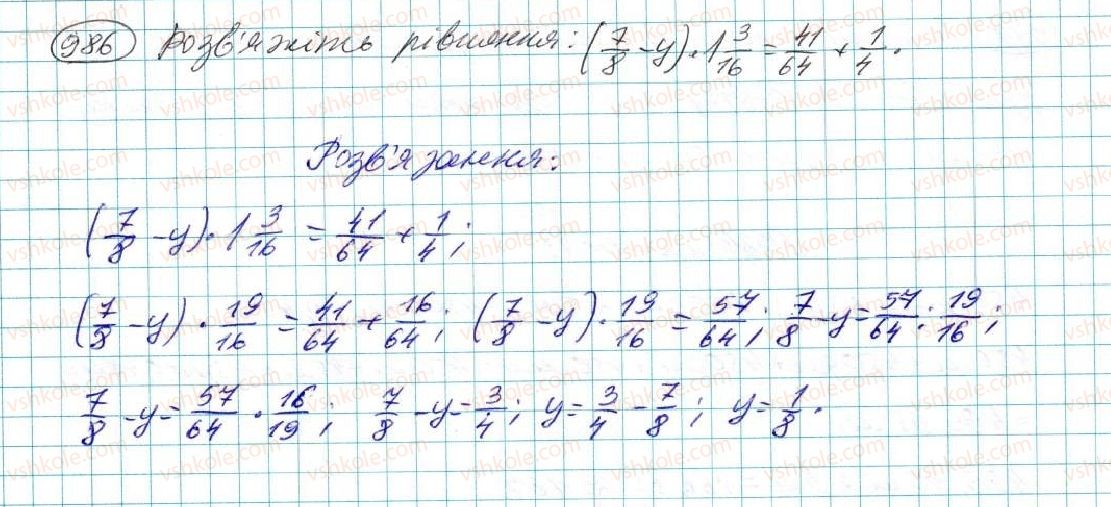 986 Розв'яжіть рівняння: (7/8 - y) · 1 3/16 = 41/64 + 1/4.
Розв'язання:
(7/8 - y) · 1 3/16 = 41/64 + 1/4;
(7/8 - y) · 19/16 = 41/64 + 16/64; (7/8 - y) · 19/16 = 57/64; 7/8 - y = 57/64 : 19/16;
7/8 - y = 57/64 · 16/19; 7/8 - y = 3/4; y = 3/4 - 7/8; y = 1/8.
vshkole.com